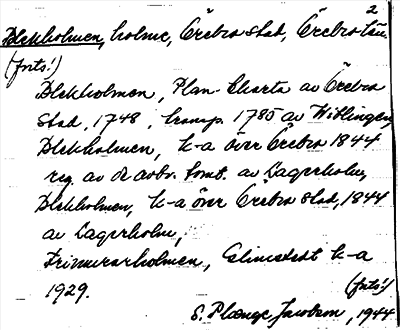 2
Blekholmen, holme, Örebro stad, Örebro län
(forts!)
Blekholmen, Plan-Charta av Örebro
Stad, 1748, komp. 1785 av Wiblingen
Blekholmen, k-a över Örebro 1844
reg. av de avbr. tomt. av Lagerholm,
Blekholmen, k-a över Örebro stad, 1844
av Lagerholm,
Frimurarholmen, Elimstedt k-a
1929.
(forts!)
S. Plænge Jacobson, 1944